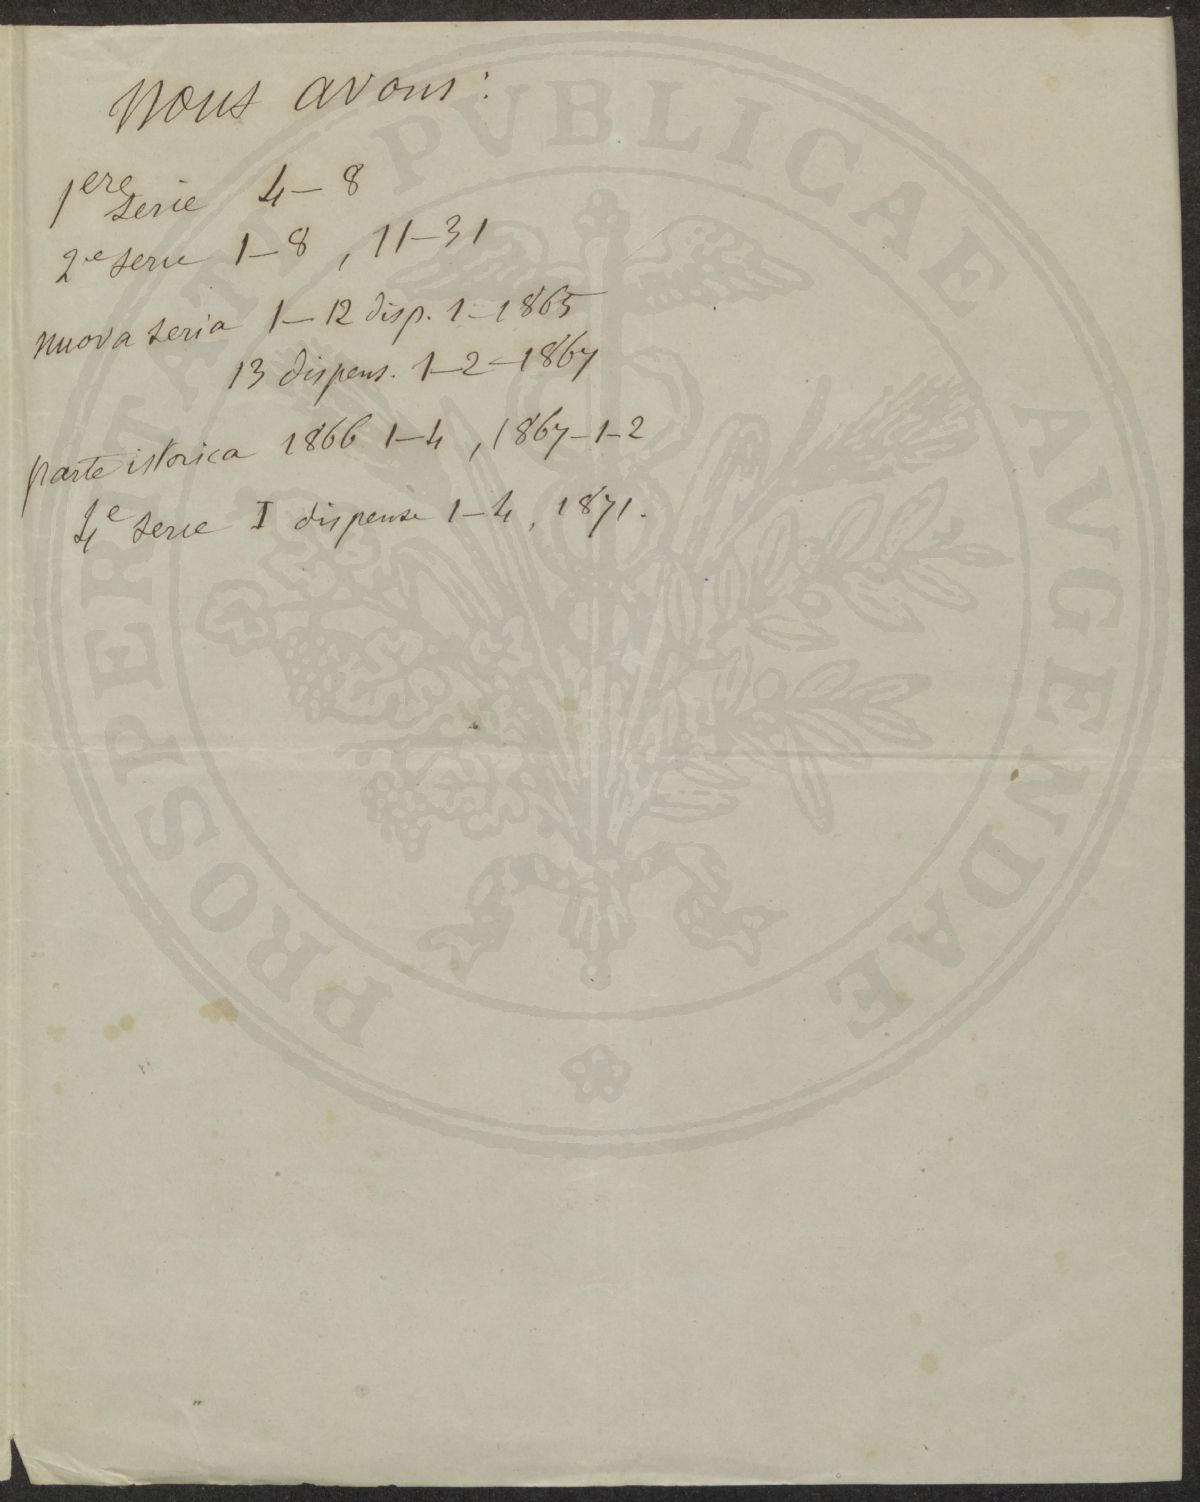 Nous avons:
1ere serie 4-8
2e serie 1-8, 11-31
nuova seria 1-12 disp. 1-1865
13 dispens. 1-2-1867
parte istorica 1866 1-4, 1867-1-2
4e serie I dispense 1-4, 1871.
PROSPERITATI PVBLICAE AVGENDAE